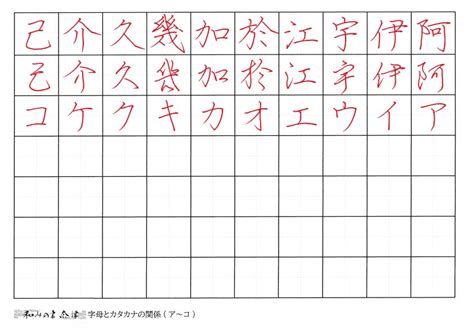 己 介 久 幾 加 於 江 宇 伊 阿
己 介 久 幾 加 於 江 宇 伊 阿
コ ケ ク キ カ オ エ ウ イ ア
字母とカタカナの関係(ア～コ)